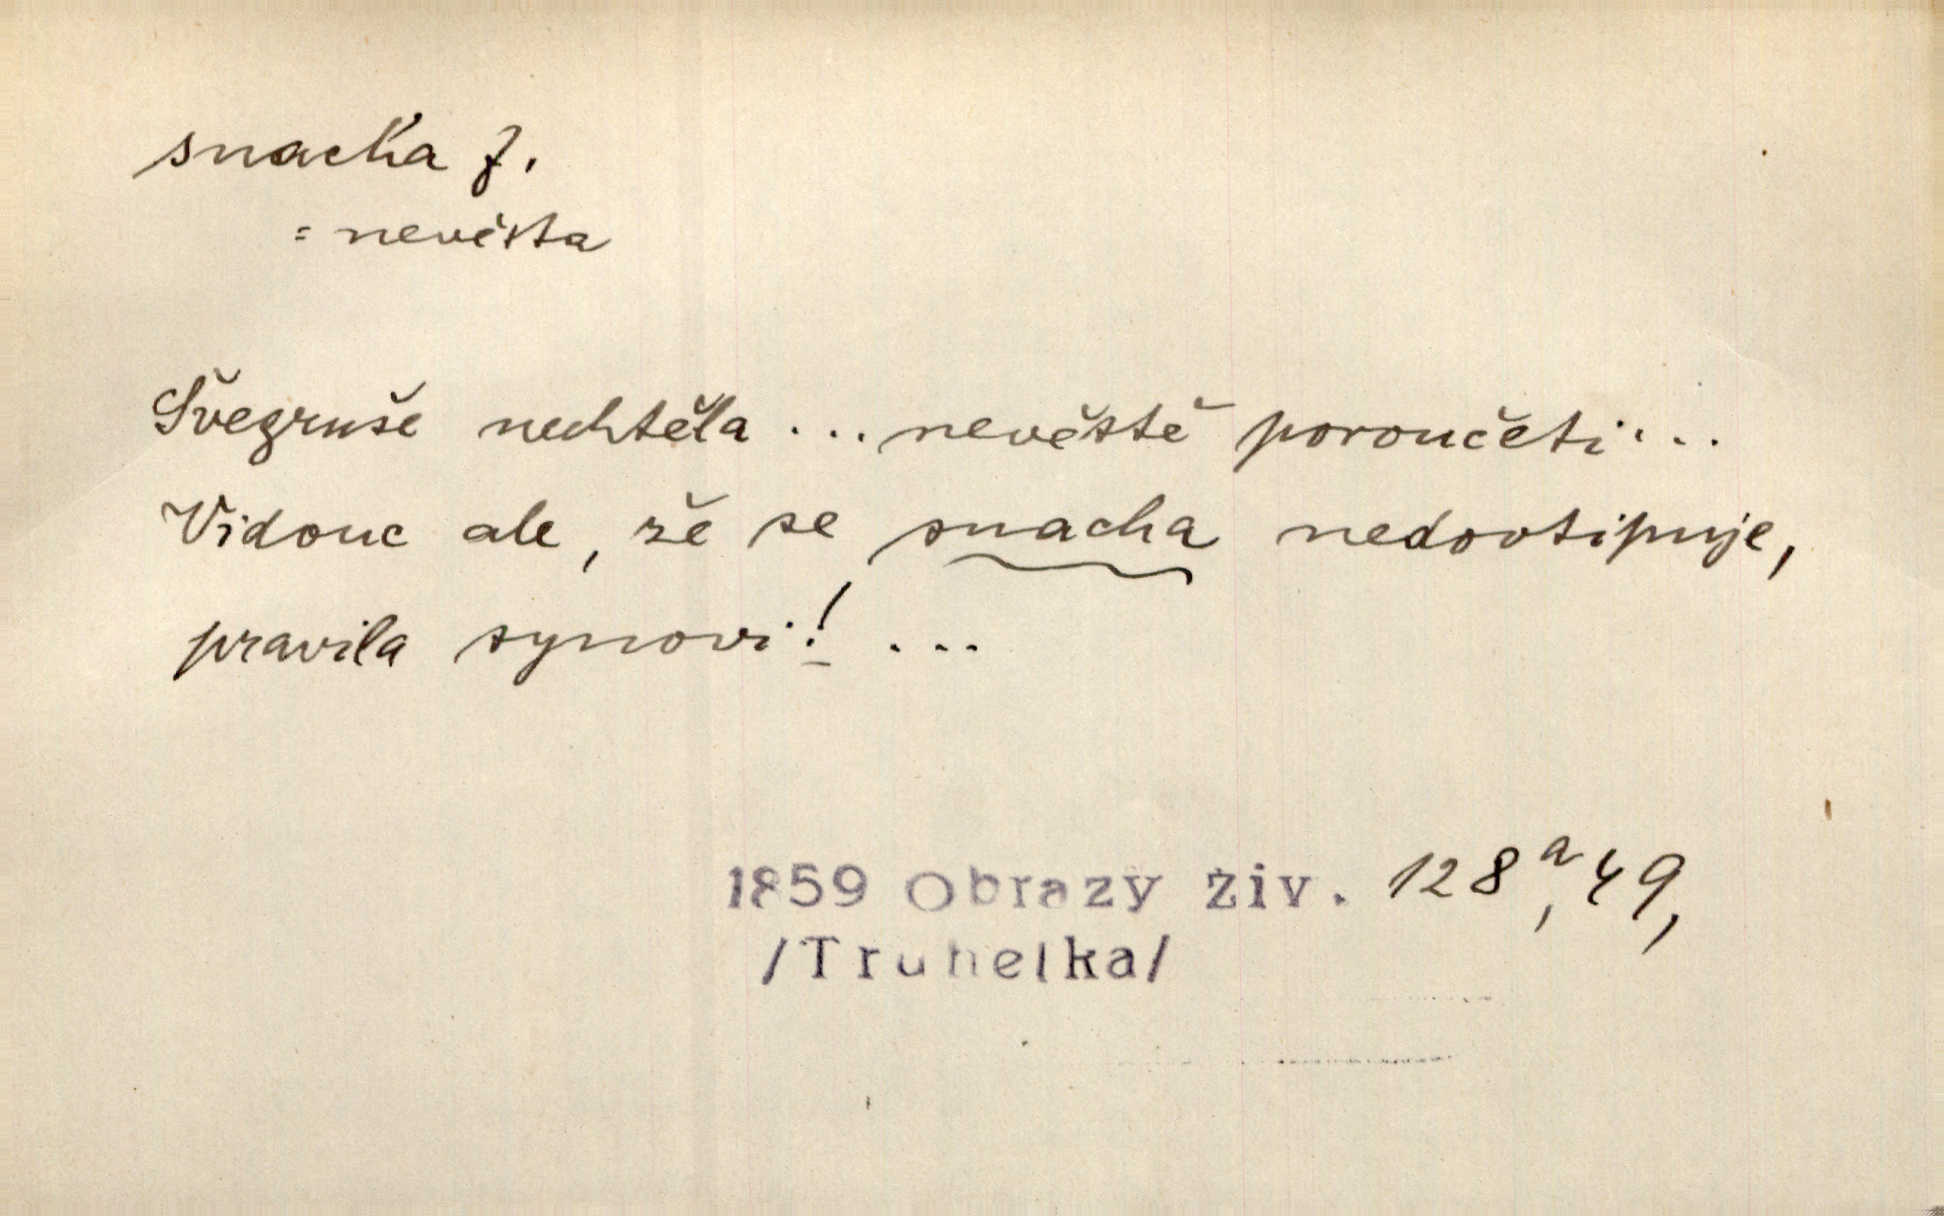 snacha f.
= nevěsta
Švegruše nechtěla ... nevěstě poroučeti ...
Vidouc ale, že se snacha nedovtipuje,
pravila synovi! ...
1859 Obrazy živ. 128a, 49,
/Truhelka/